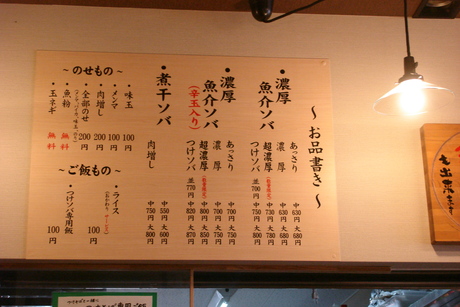 〜お品書き〜
・濃厚
魚介ソバ
あっさり 中 630円 大 680円
濃厚 中 630円 大 680円
超濃厚 中 730円 大 780円
つけソバ 並 700円 中 750円 大 800円
・濃厚
魚介ソバ
(辛玉入り)
あっさり 中 700円 大 750円
濃厚 中 700円 大 750円
超濃厚 中 800円 大 850円
つけソバ 並 770円 中 820円 大 870円
・煮干ソバ
中 550円 大 600円
肉増し 中 750円 大 800円
〜のせもの〜
・味玉 100円
・メンマ 100円
・肉増し 200円
・全部のせ 200円
・魚粉 無料
・玉ネギ 無料
〜ご飯もの〜
・ライス 100円
・つけソバ専用飯 100円